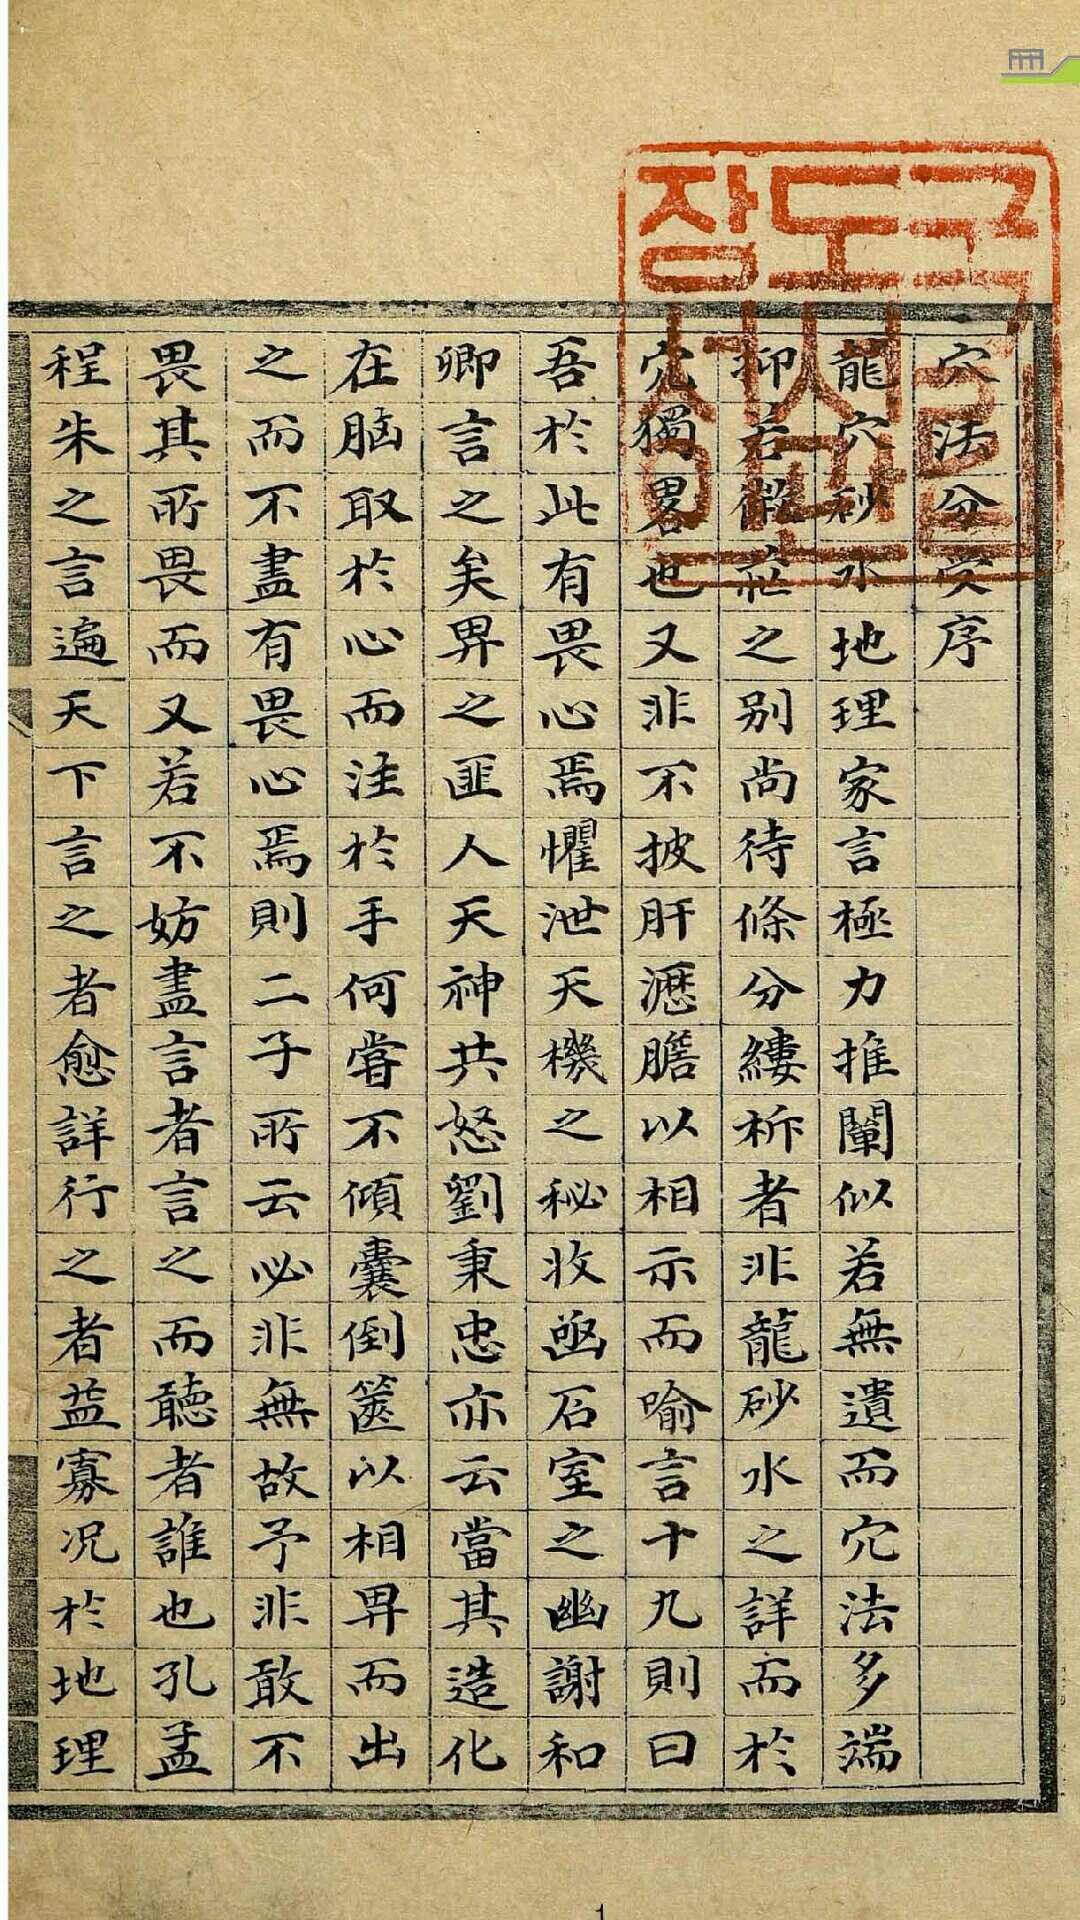 국립
도서관
장서인
穴法分序
龍穴秒水地理家言極力推闡似若無遺而穴法多端
抑若微茫之别尚待條分縷析者非龍砂水之詳而於
穴獨畧也又非不披肝瀝膽以相示而喻言十九則曰
吾於此有畏心焉懼泄天機之秘收函石室之幽謝和
卿言之矣畀之匪人天神共怒劉秉忠亦云當其造化
在脑取於心而注於手何嘗不傾囊倒篋以相畀而出
之而不盡有畏心焉則二子所云必非無故予非敢不
畏其所畏而又若不妨盡言者言之而聽者誰也孔孟
程朱之言遍天下言之者愈詳行之者益寡况於地理
1